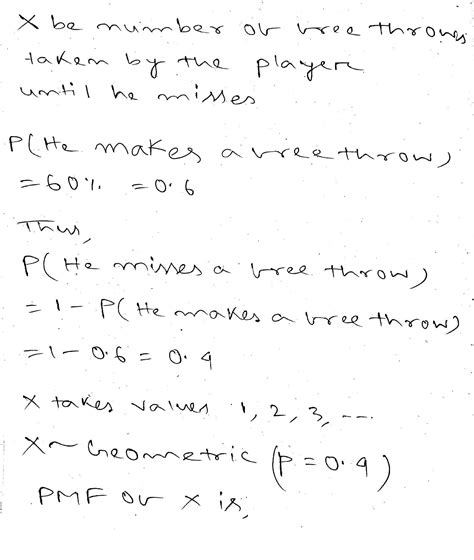 X be number of free throws
taken by the player
until he misses
P(He makes a free throw)
= 60% = 0.6
Thus,
P(He misses a free throw)
= 1 - P(He makes a free throw)
= 1 - 0.6 = 0.4
X takes values 1, 2, 3, ---.
X ~ Geometric (p = 0.4)
PMF of X is,